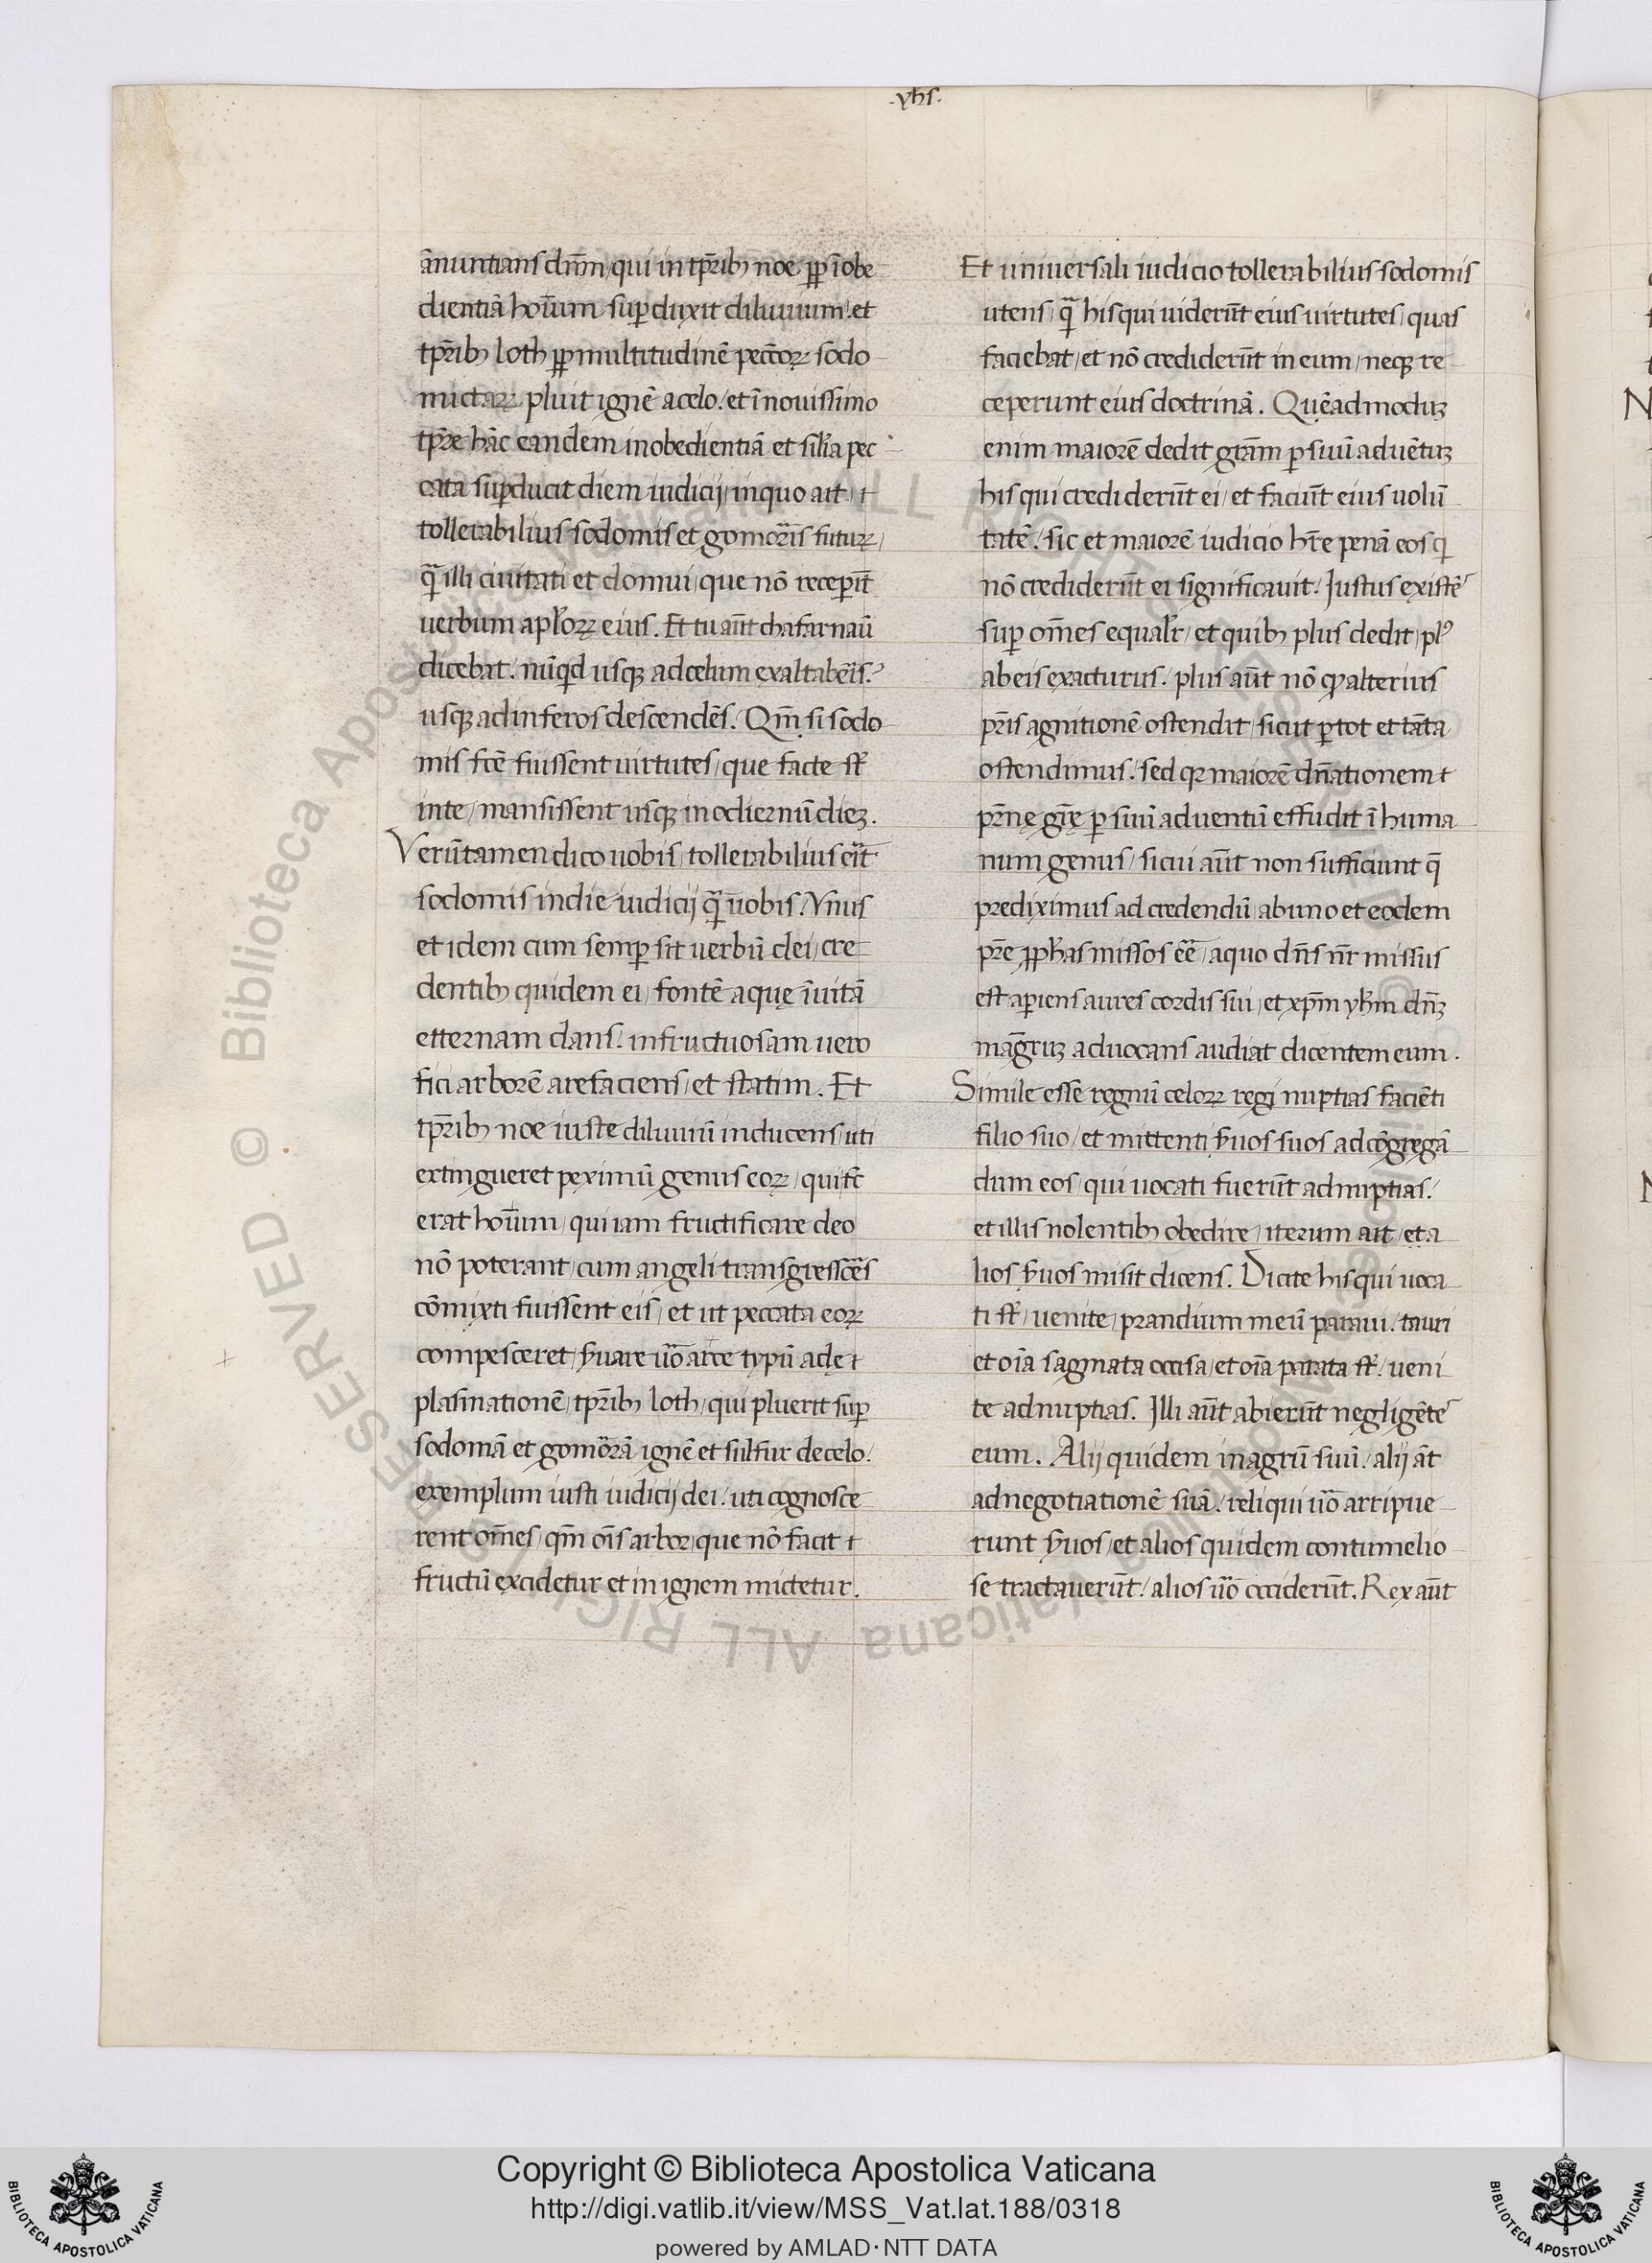 .yhs.
ānuntians dn̄m, qui in tp̄rib; noe, ꝓp īobe
dientiā hoīum suꝑduxit diluuium! et
tp̄rib; loth ꝓp multitudinē pec̄toꝝ sodo
mictaꝝ pluit ignē a celo. et ī nouissimo
tp̄re hāc eandem inobedientiā et sil̄ia pec
cata suꝑducit diem iudicij, in quo ait,
tollerabilius sodomis et gomoꝛ̄is futuꝝ,
q̄ illi ciuitati et domui, que nō receꝑīt
uerbum apl̄oꝝ eius. Et tu aūt chafarnaū
dicebat. nūq̇d usqꝫ ad celum exaltabeꝛ̄is?
usqꝫ ad inferos descendēs. Qm̄ si sodo
mis fc̄e fuissent uirtutes, que facte st̄
in te, mansissent usqꝫ in odiernū dieꝫ.
Verūtamen dico uobis, tollerabilius eīt
sodomis in die iudicij q̄ uobis. Vnus
et idem cum semꝑ sit uerbū dei, cre
dentib; quidem ei, fontē aquę ī uitā
etternam dans. infructuosam uero
fici arborē arefaciens, et statim. Et
tp̄rib; noe iuste diluuiū inducens, uti
extingueret peximū genus eoꝝ, qui tc̄
erat hoīum, qui iam fructificare deo
nō poterant, cum angeli transgressoꝛ̄es
cōmixti fuissent eis, et ut peccata eoꝝ
compesceret, ẜuare ūo arce typū adę
plasmationē, tp̄rib; loth, qui pluerit suꝑ
sodomā et gomoꝛ̄ā ignē et sulfur de celo.
exemplum iusti iudicij dei. uti cognosce
rent om̄es, qm̄ oīs arbor, que nō facit
fructū excidetur et in ignem mictetur.
Et uniuersali iudicio tollerabilius sodomis
utens, q̄ his qui uiderūt eius uirtutes, quas
faciebat, et nō crediderūt in eum, neqꝫ re
ceperunt eius doctrinā. Quēadmoduꝫ
enim maiorē dedit gr̄am ꝑ suū aduētuꝫ
his qui crediderūt ei, et faciūt eius uolū
tatē. sic et maiorē iudicio hr̄e penā eos q̇
nō crediderūt ei significauit. Justus existēs
suꝑ om̄es equalr̄, et quib; plus dedit, plꝰ
ab eis exacturus. plus aūt nō ꝙ alterius
pr̄is agnitionē ostendit, sicut ꝑ tot et tāta
ostendimus. sed qꝛ maiorē dn̄ationem
pr̄nę gr̄ę ꝑ suū aduentū effudit ī huma
num genus, sicui aūt non sufficiunt q̄
prediximus ad credendū, ab uno et eodem
pr̄e ꝓph̄as missos eē̄, a quo dn̄s nr̄ missus
est aꝑiens aures cordis sui, et xp̄m yh̄m dn̄ꝫ
māgruꝫ aduocans audiat dicentem eum.
Simile esse regnū celoꝝ regi nuptias faciēti
filio suo, et mittenti ẜuos suos ad cōgregā
dum eos, qui uocati fuerūt ad nuptias.
et illis nolentib; obedire, iterum ait, et a
lios ẜuos misit dicens. Dicite his qui uoca
ti st̄, uenite, prandium meū paraui. tauri
et oīa saginata occisa, et oīa parata st̄. ueni
te ad nuptias. Illi aūt abierūt negligētes
eum. Alij quidem in agrū suū. alij āt
ad negotiationē suā. reliqui ūo arripue
runt ẜuos, et alios quidem contumelio
se tractauerūt. alios ūo occiderūt. Rex aūt
© Biblioteca Apostolica Vaticana ALL RIGHTS RESERVED
Copyright © Biblioteca Apostolica Vaticana
http://digi.vatlib.it/view/MSS_Vat.lat.188/0318
powered by AMLAD·NTT DATA
BIBLIOTECA APOSTOLICA VATICANA
BIBLIOTECA APOSTOLICA VATICANA